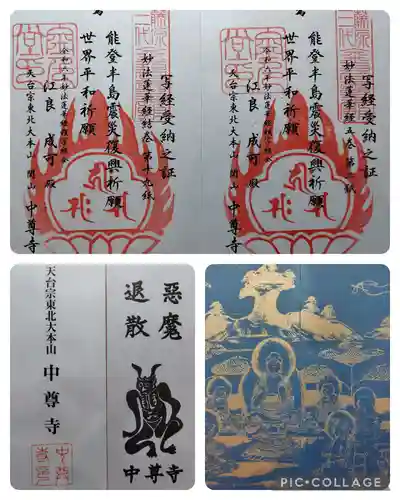 写経受納之証
妙法蓮華経結巻 第十九紙
能登半島震災復興祈願
世界平和祈願
江良 成可 殿
天台宗東北大本山 関山 中尊寺
写経受納之証
妙法蓮華経五巻 第一紙
能登半島震災復興祈願
世界平和祈願
江良 成可 殿
天台宗東北大本山 関山 中尊寺
天台宗東北大本山 中尊寺
惡魔
退散
中尊寺
PIC•COLLAGE